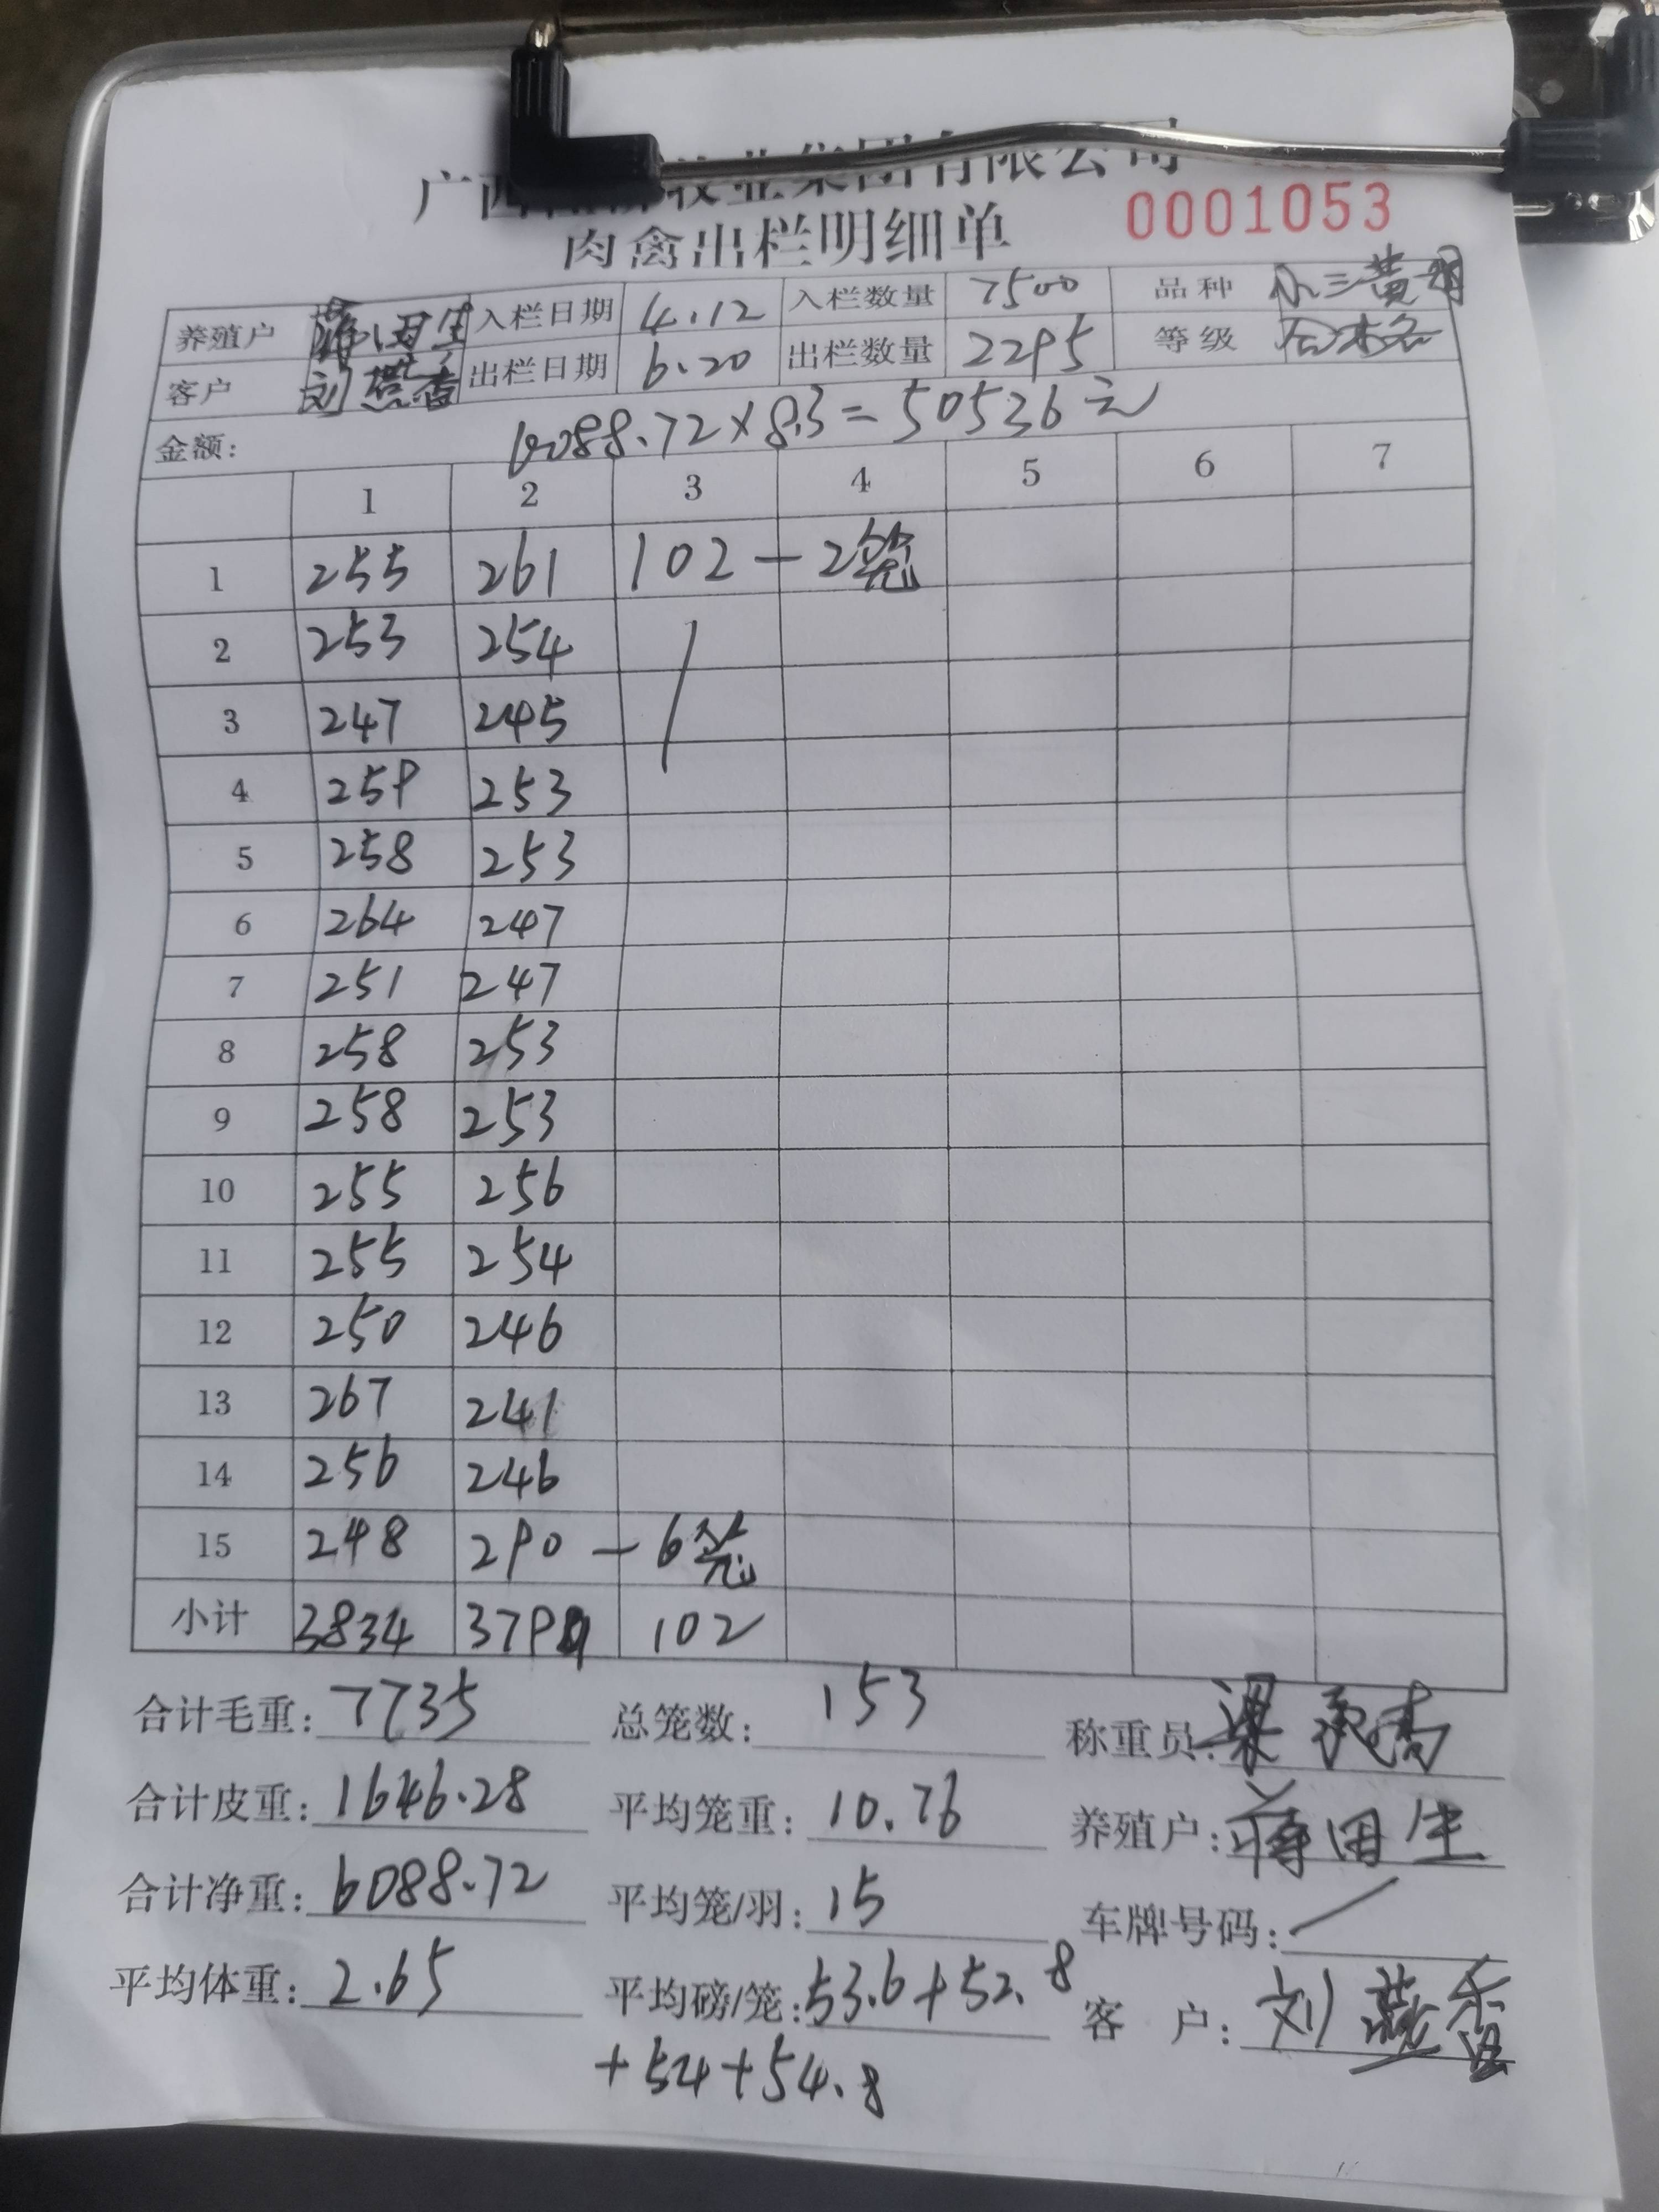 广西 牧业集团有限公司
肉禽出栏明细单 0001053
养殖户 蒋田生 入栏日期 4.12 入栏数量 7500 品种
客户 刘燕香 出栏日期 6.20 出栏数量 2295 等级 合格
金额: 6088.72×8.3=50536元
1 2 3 4 5 6 7
1 255 261 102 — 2笼
2 253 254 /
3 247 245
4 259 253
5 258 253
6 264 247
7 251 247
8 258 253
9 258 253
10 255 256
11 255 254
12 250 246
13 267 241
14 256 246
15 248 290 — 6笼
小计 3834 3799 102
合计毛重: 7735 总笼数: 153 称重员: 梁
合计皮重: 1646.28 平均笼重: 10.76 养殖户: 蒋田生
合计净重: 6088.72 平均笼/羽: 15 车牌号码: /
平均体重: 2.65 平均磅/笼: 53.6+52.8 客 户: 刘燕香
+54+54.8